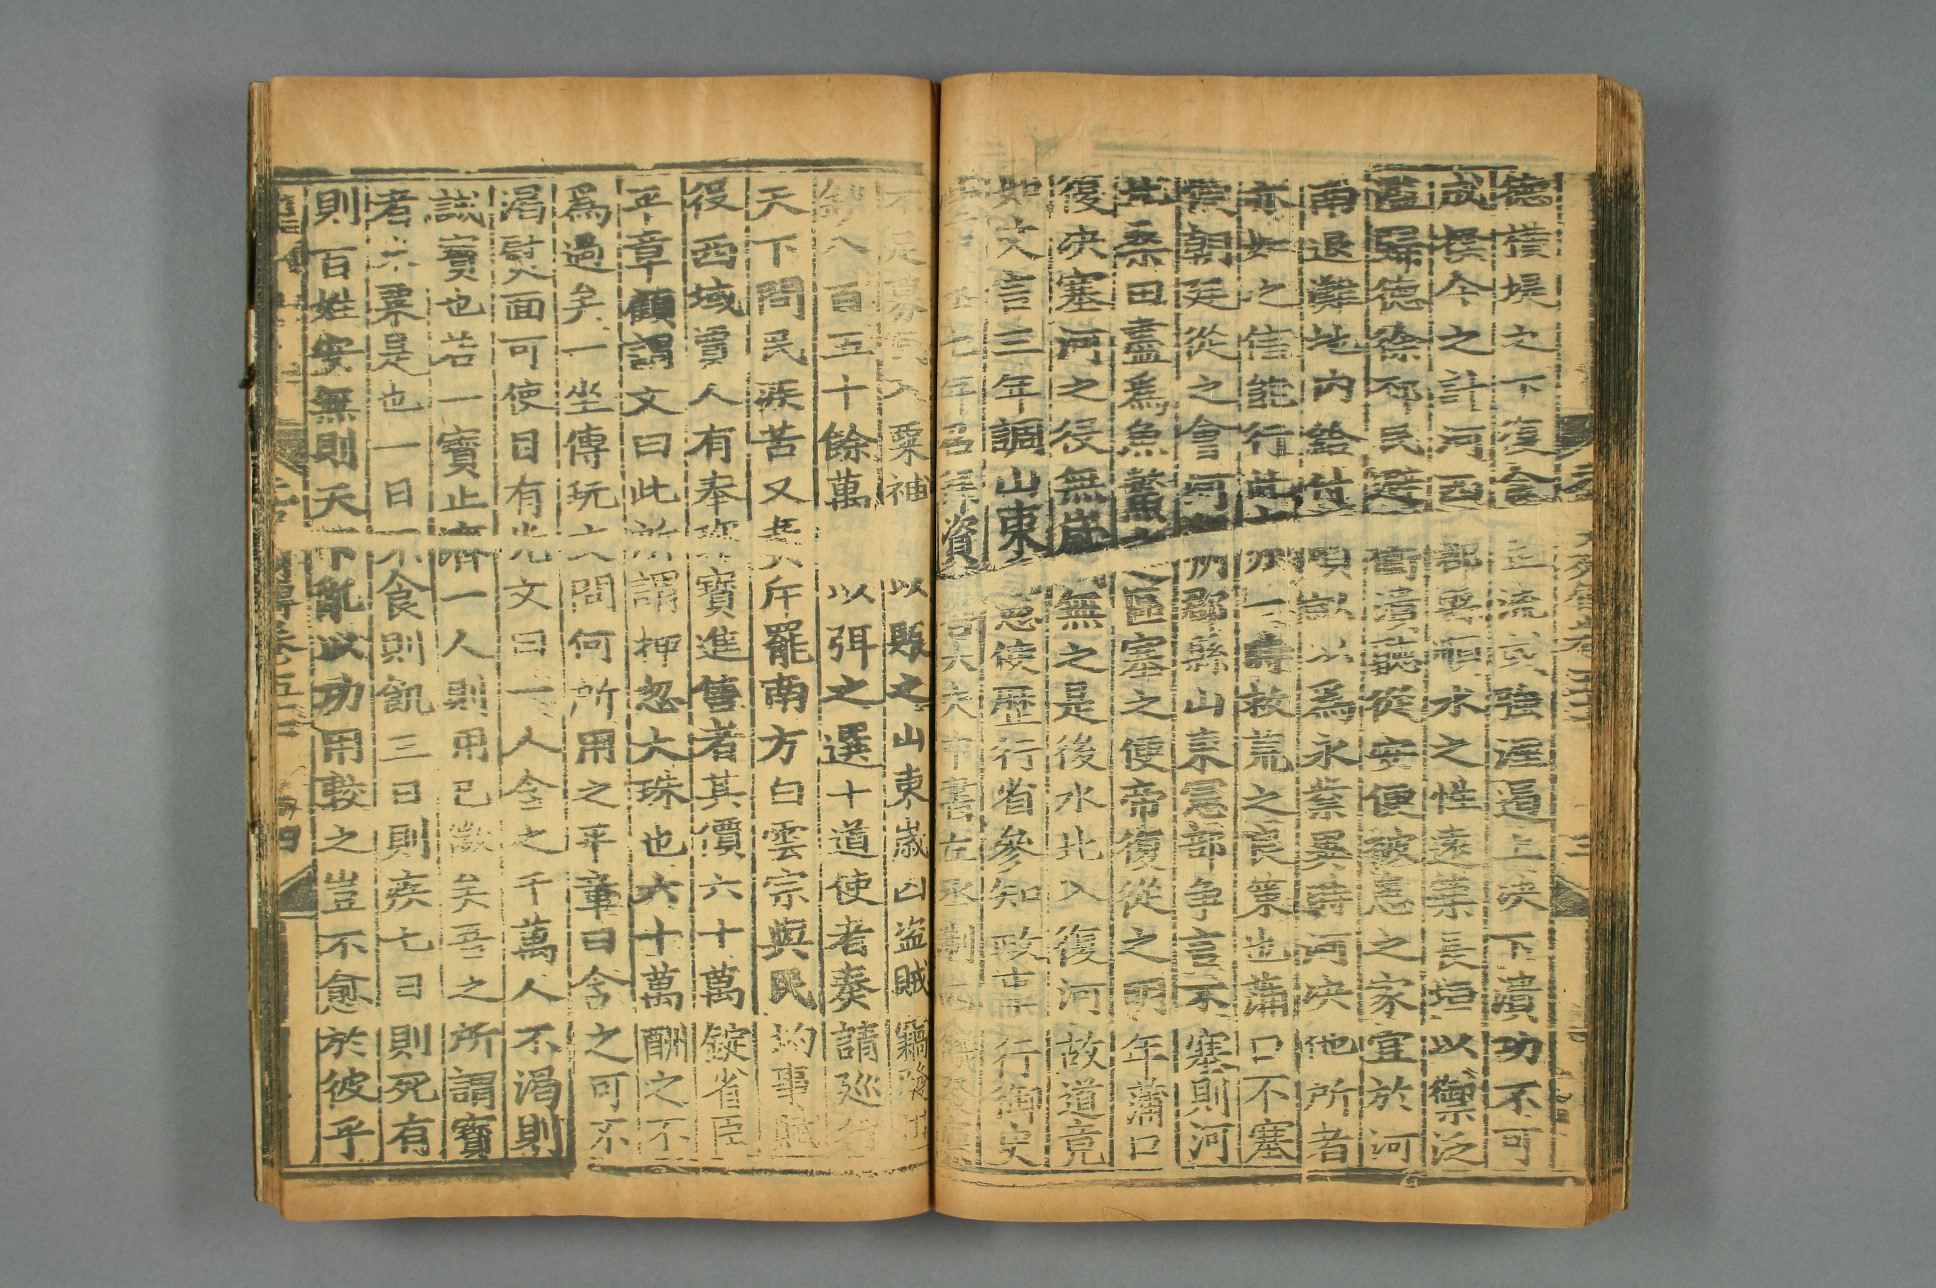 德橫堤之下復合正流或強湮遏上決下潰功不可
成揆今之計河西郡縣順水之性遠築長垣以禦泛
溢歸德徐邳民避衝潰聽從安便被患之家宜於河
南退灘地內給付頃畝以爲永業異時河決他所者
亦如之信能行此亦一時救荒之良策也蒲口不塞
便朝廷從之會河朔郡縣山東憲部争言不塞則河
北桑田盡爲魚鱉之區塞之便帝復從之明年蒲口
復決塞河之役無歲無之是後水北入復河故道竟
如文言三年調山東憲使歷行省參知政事行御史
臺中丞七年召拜資善大夫中書左丞浙西饑發廩
不足募民入粟補以賑之山東歲凶盜賊竊發出
鈔八百五十餘萬以弭之選十道使者奏請巡行
天下問民疾苦又奏斥罷南方白雲宗與民均事賦
役西域賈人有奉珍寶進售者其價六十萬錠省臣
平章顧謂文曰此所謂押忽大珠也六十萬酬之不
爲過矣一坐傳玩文問何所用之平章曰含之可不
渴熨面可使目有光文曰一人含之千萬人不渴則
誠寶也若一寶止濟一人則用已微矣吾之所謂寶
者米粟是也一日不食則飢三日則疾七日則死有
則百姓安無則天下亂以功用較之豈不愈於彼乎